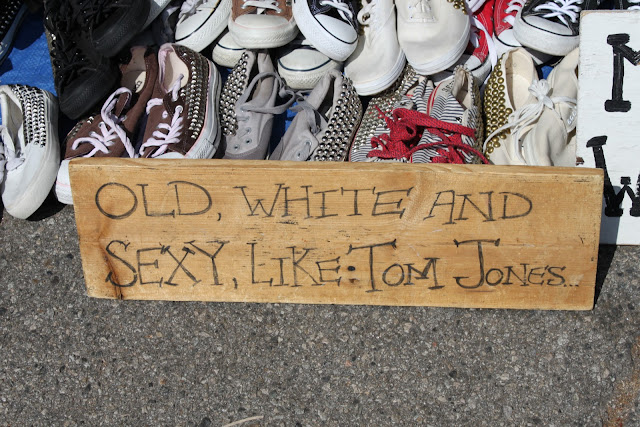 OLD, WHITE AND
SEXY, LIKE: TOM JONES...